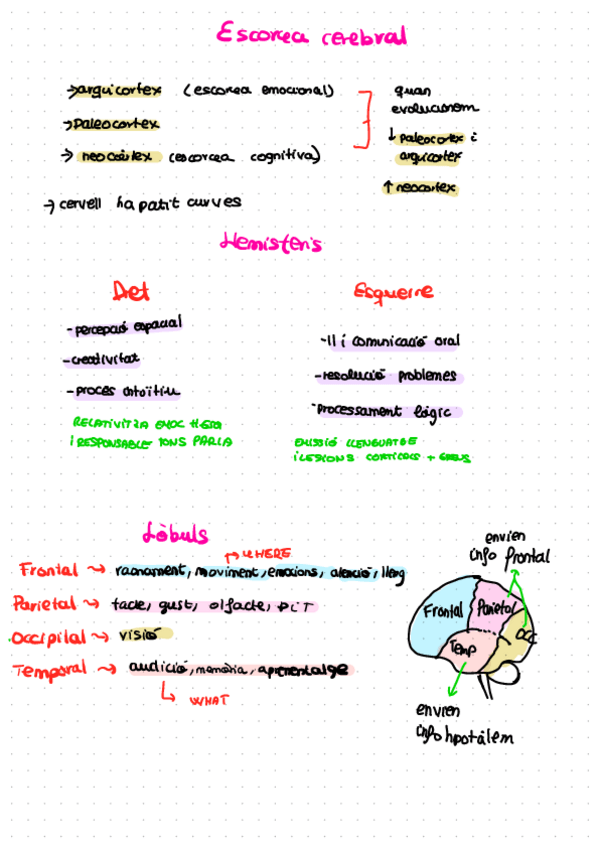 Escorça cerebral
→ arquicortex (escorça emocional)
→ Paleocortex
→ neocòrtex (escorça cognitiva)
quan
evolucionem
↓ paleocortex i
arquicortex
↑ neocortex
→ cervell ha patit curves
Hemisferis
Dret
- percepció espacial
- creativitat
- procés intuïtiu
RELATIVITZA EMOC
I RESPONSABLE TONS PARLA
Esquerre
- ll i comunicació oral
- resolució problemes
- processament lògic
EMISSIÓ LLENGUATGE
I LESIONS CORTICALS + GREUS
Lòbuls
WHERE
Frontal → raonament, moviment, emocions, atenció, lleng
Parietal → tacte, gust, olfacte,
Occipital → visió
Temporal → audició, memòria, aprenentatge
WHAT
envien
info frontal
Frontal
Parietal
OCC
Temp
envien
info hpotàlem